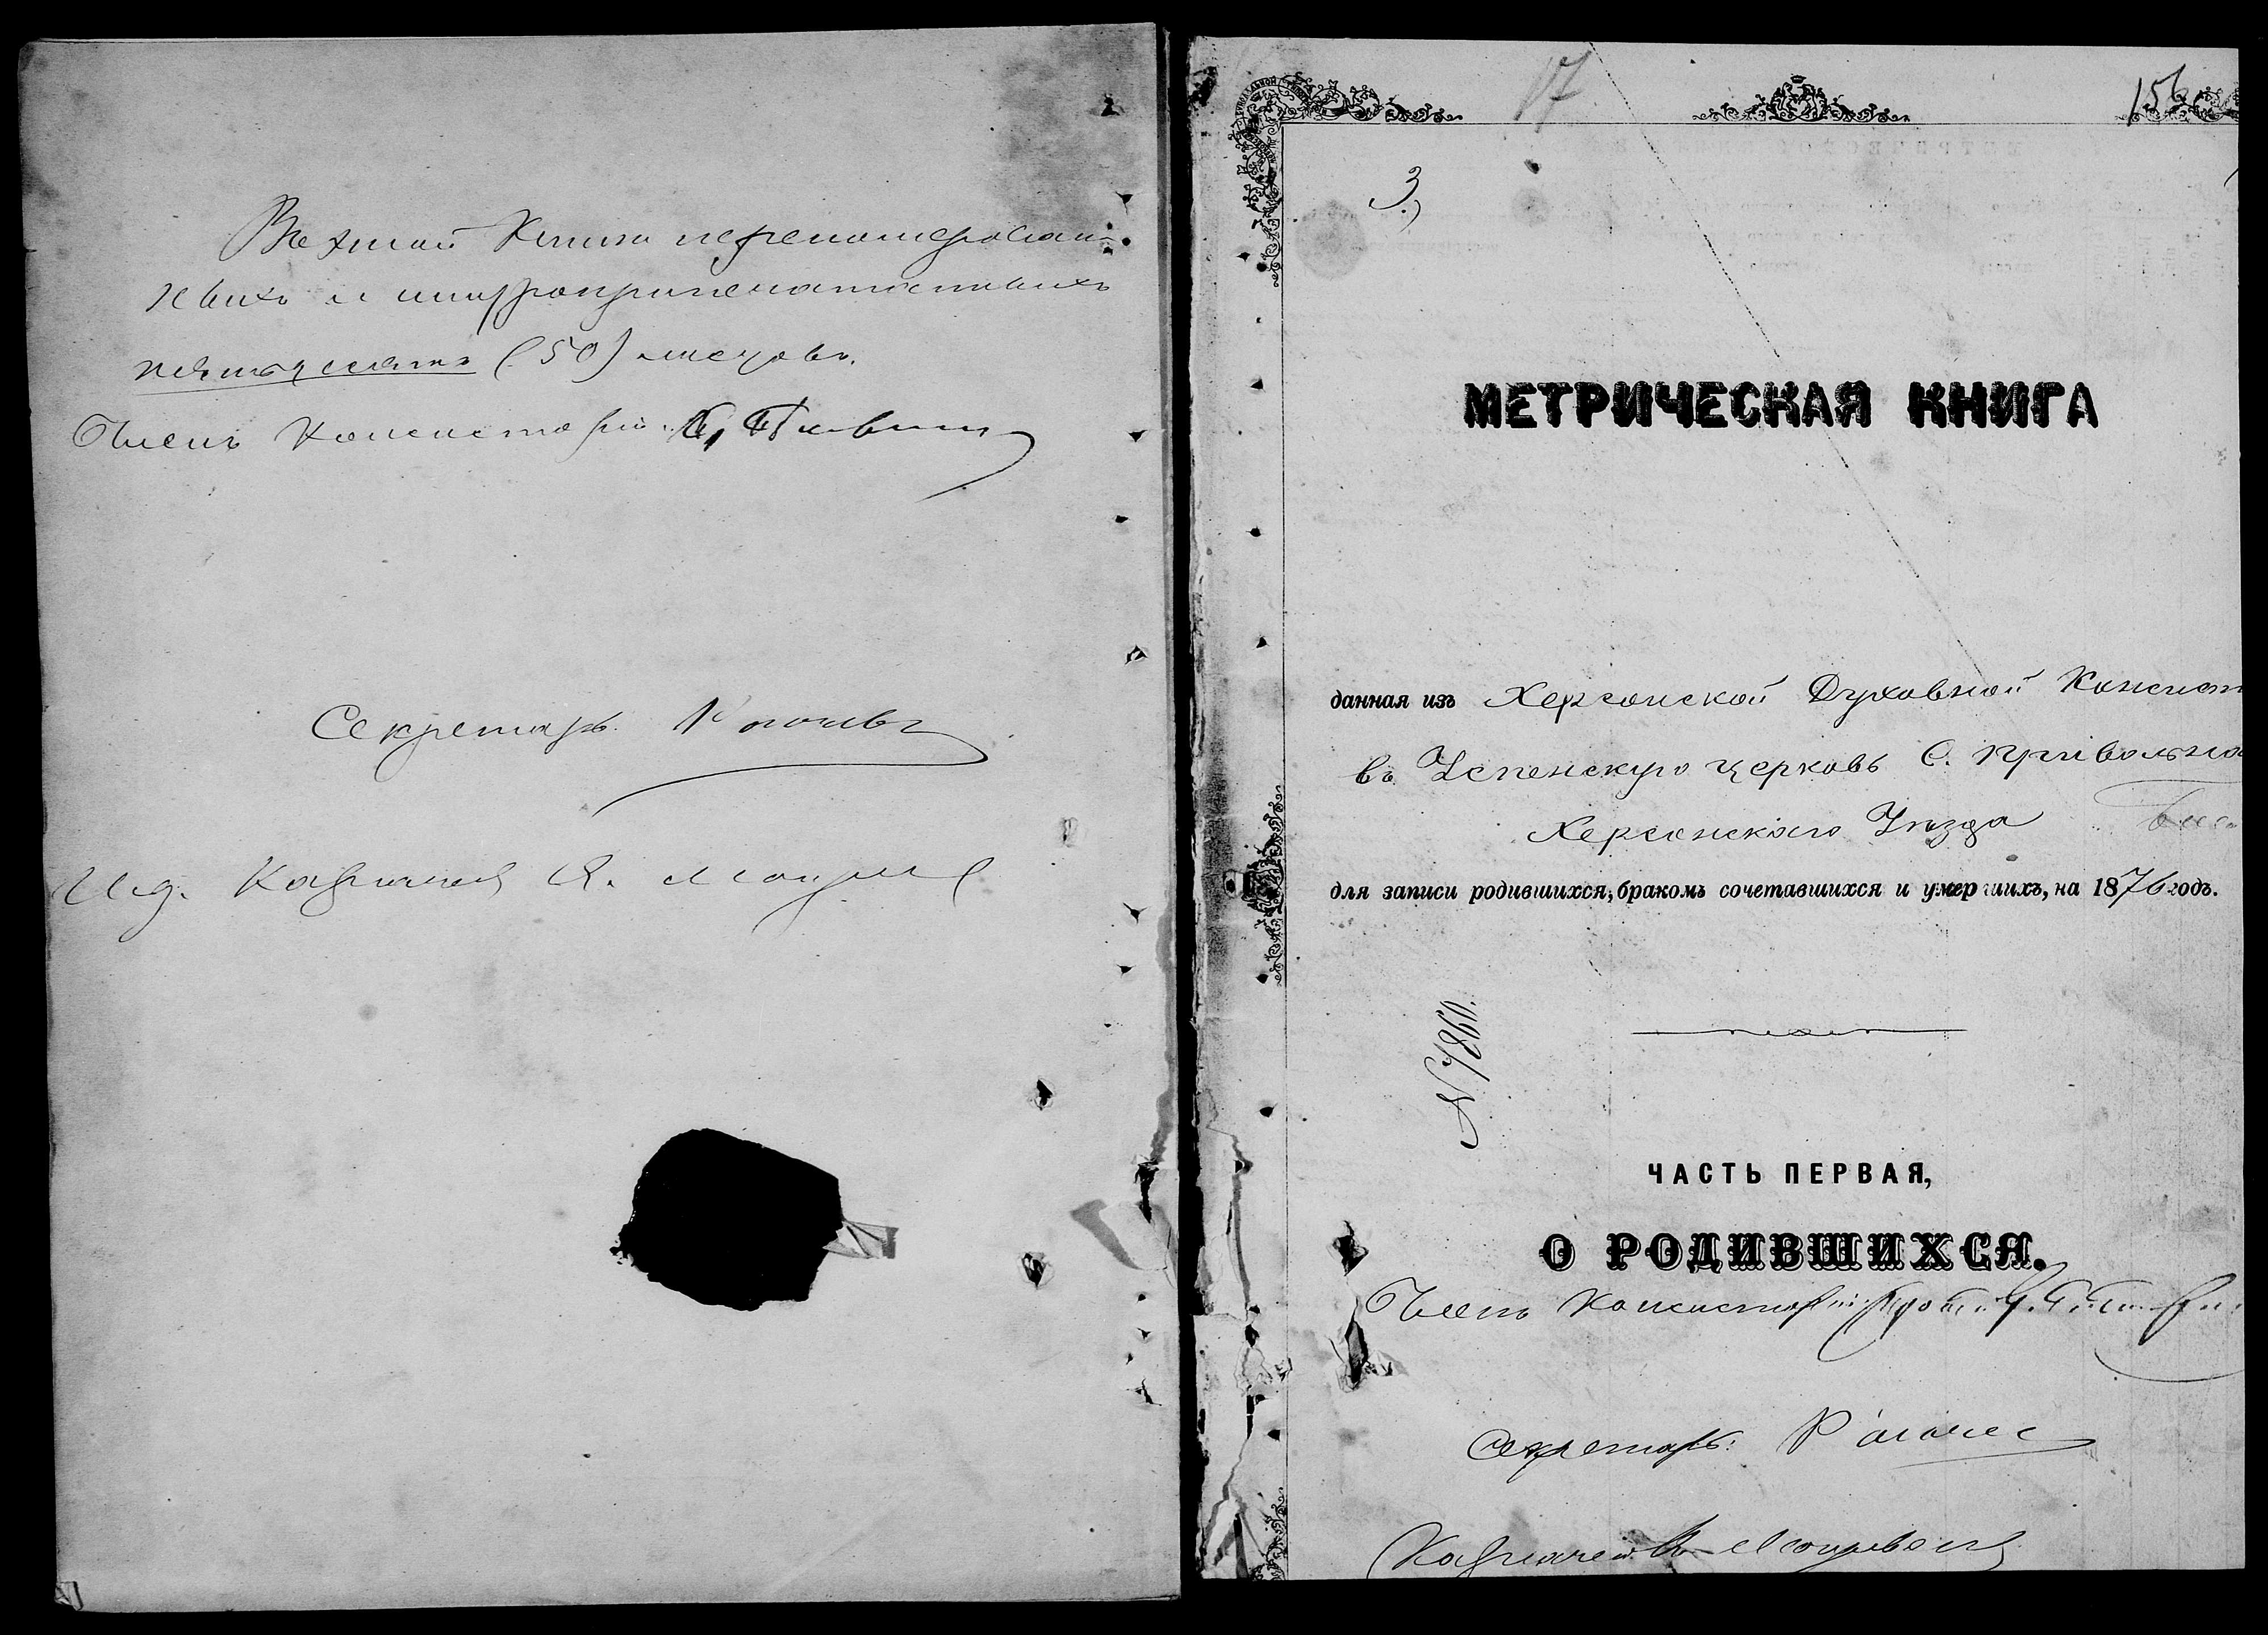 Въ этой Книги перенумерован-
ныхъ и шнуроприпечатанныхъ
пятьдесятъ (50) листовъ.
Членъ Консисторіи
Секретарь
И. д.
17
156
3)
МЕТРИЧЕСКАЯ КНИГА
данная изъ Херсонской Духовной Консист
въ Успенскую церковь с. Привольна
Херсонскаго Уѣзда
для записи родившихся, бракомъ сочетавшихся и умершихъ, на 1876 годъ.
N 7860.
ЧАСТЬ ПЕРВАЯ,
О РОДИВШИХСЯ.
Членъ Консисторіи
Секретарь:
Казначей